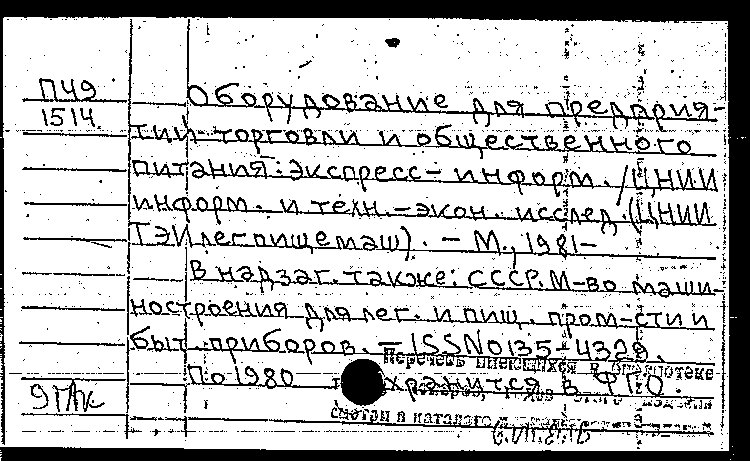 П49
1514
Оборудование для предприя-
тий торговли и общественного
питания: Экспресс-информ. / ЦНИИ
информ. и техн.-экон. исслед. (ЦНИИ
ТЭИлегпищемаш). - М., 1981-
В надзаг. также: СССР. М-во маши-
ностроения для лег. и пищ. пром-сти и
быт. приборов. - ISSN 0135-4329.
Перечень имеющихся в библиотеке
По 1980 хранится в ФПО.
смотри в каталоге